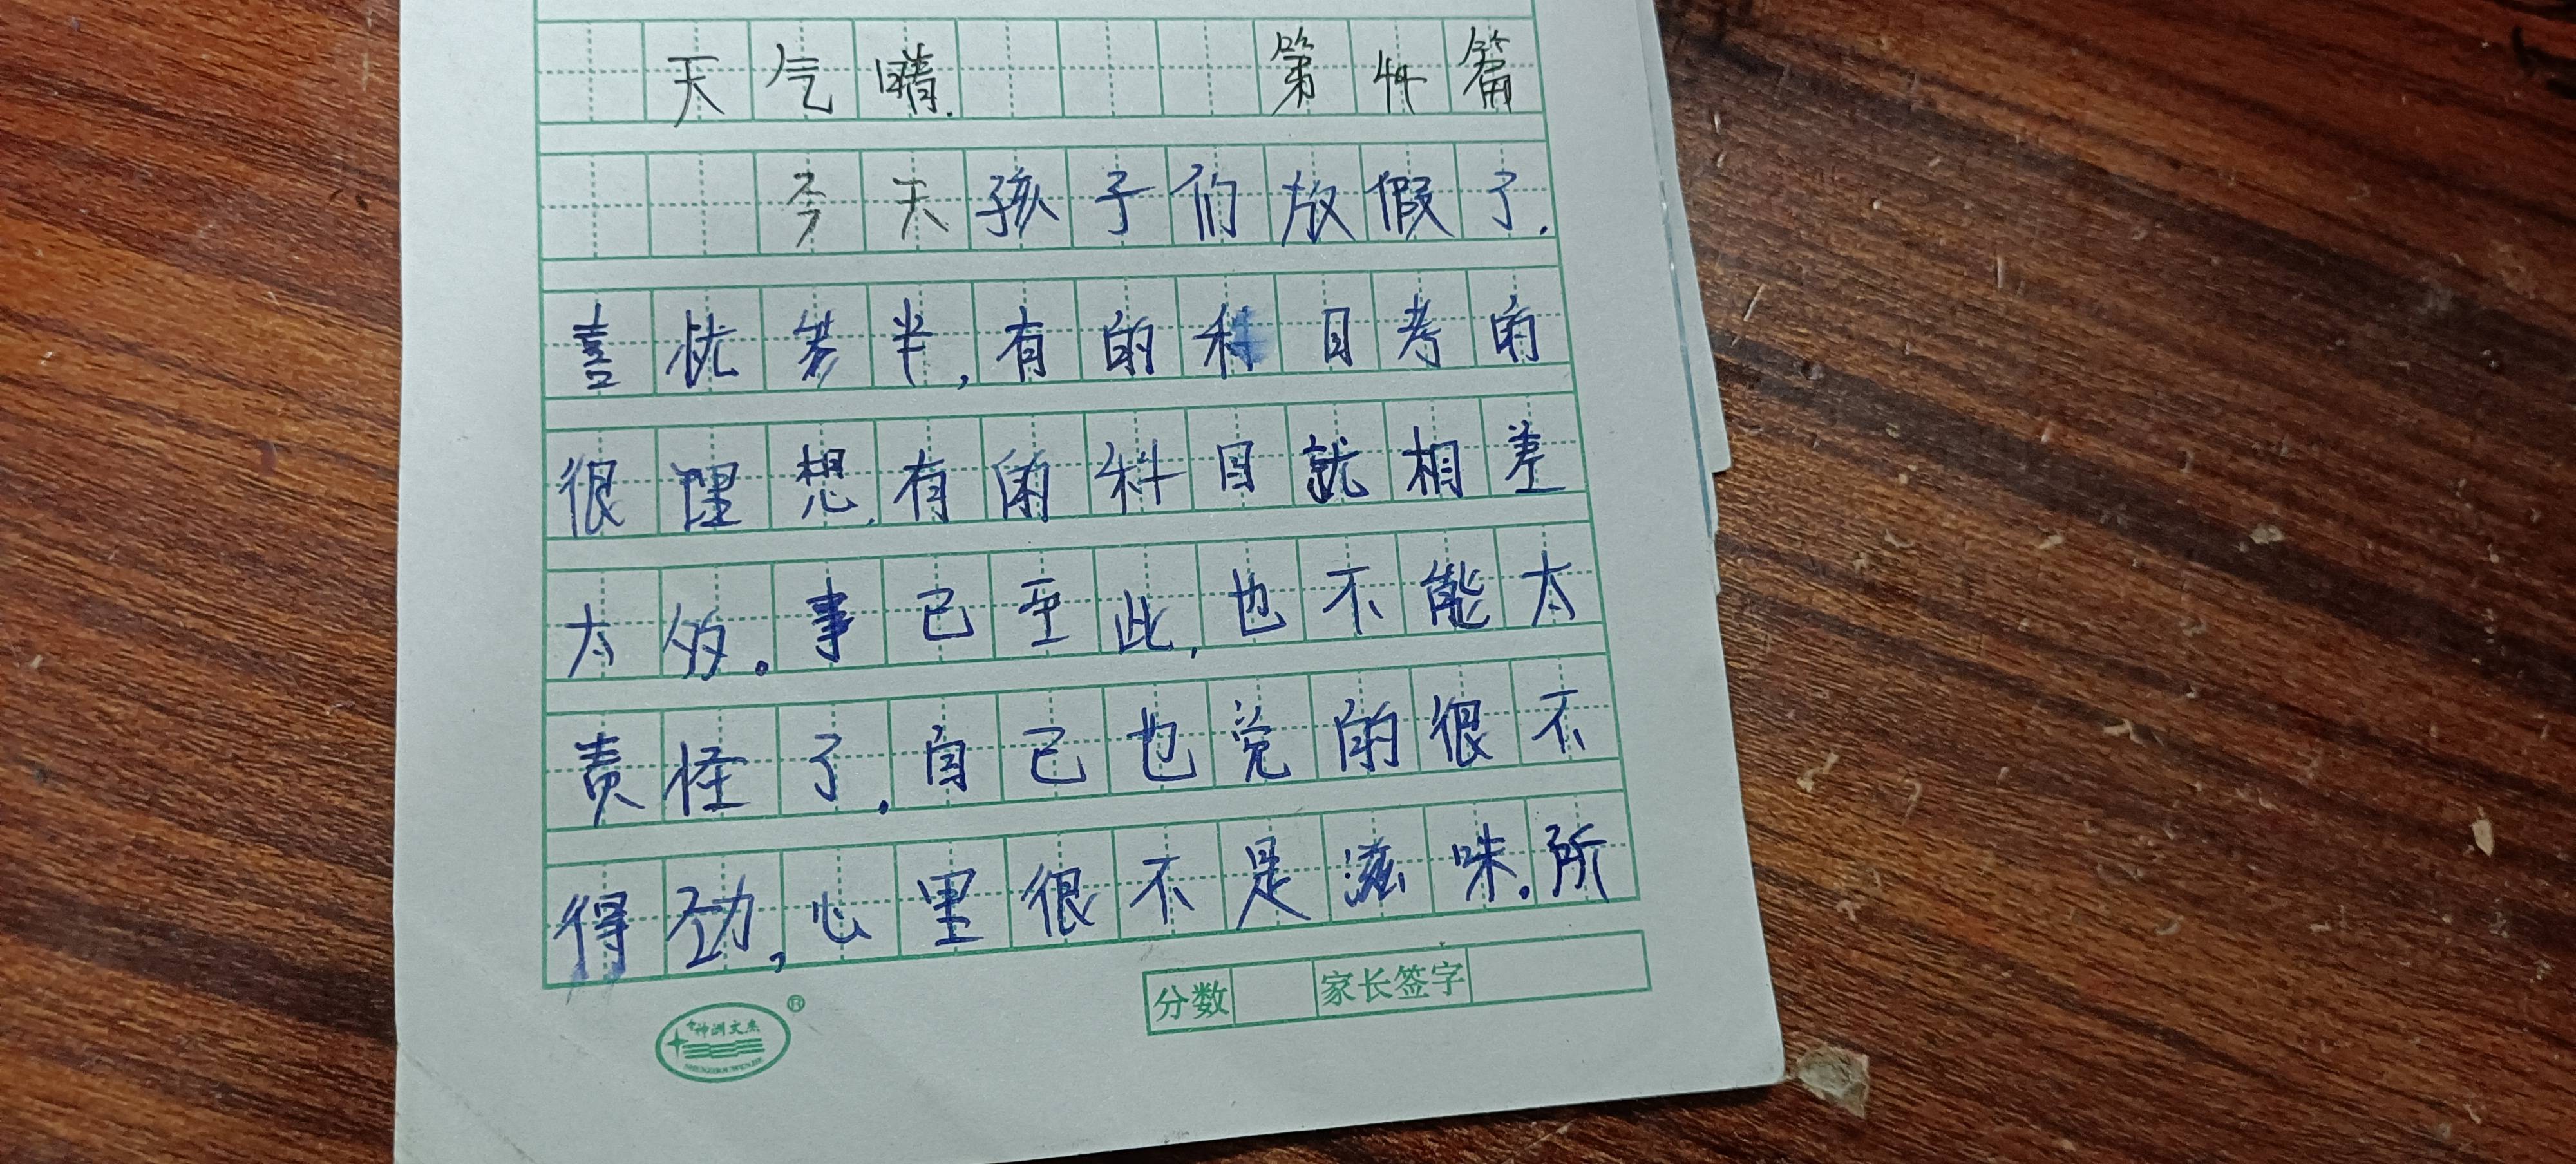 天气晴. 第44篇
今天孩子们放假了.
喜忧参半,有的科目考的
很理想,有的科目就相差
太多。事已至此,也不能太
责怪了,自己也觉的很不
得劲,心里很不是滋味.所
分数 家长签字
神洲文杰®
SHENZHOUWENJIE